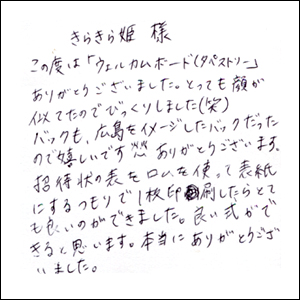 きらきら姫 様
この度は「ウェルカムボード(タペストリー」
ありがとうございました。とっても顔が
似てたのでびっくりしました(笑)
バックも、広島をイメージしたバックだった
ので嬉しいです ありがとうございます、
招待状の表をロムを使って表紙
にするつもりで1枚印刷したらとて
も良いのができました。良い式がで
きると思います。本当にありがとうござ
いました。